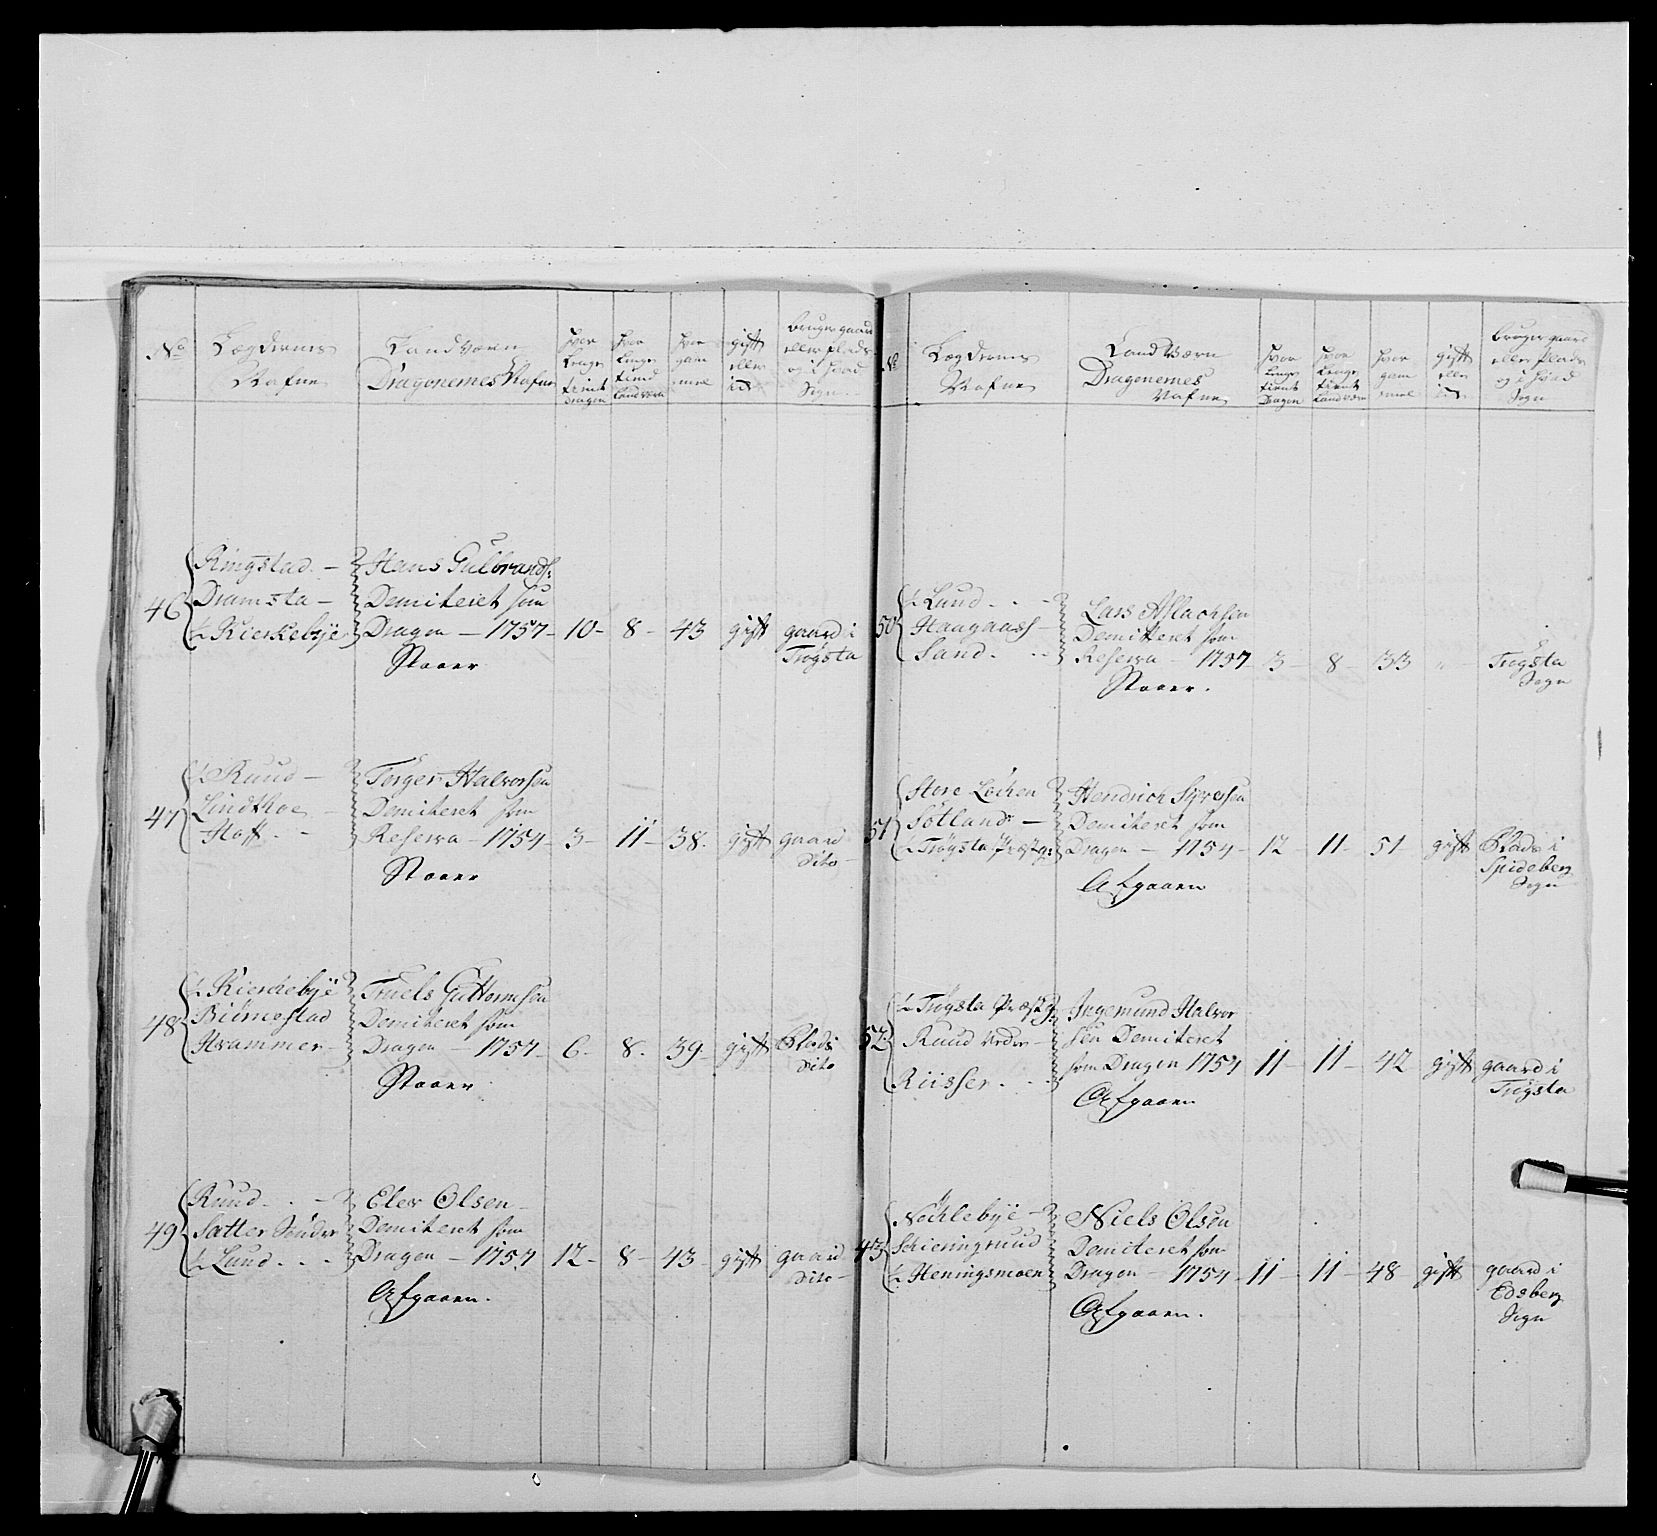 No
Lægdernes
Nafne
Landværn
Dragonernes Nafne
hvor
længe
tient
Dragon
hvor
længe
tient
Landværn
hvor
gam
mel
gift
eller
ei
bruger gaard
eller plads
og i hvad
Sogn
46
Ringstad
Dramsta
½ Kierkebye
Hans Gulbrands:
Demiteret som
Dragon - 1757 - 10 - 8 - 43 gift gaard i
Trøgsta
Staaer
47
½ Ruud
Lindthoe
Hoff
Torger Halvorsen
Demiteret som
Reserva - 1754 - 3 - 11 - 38. gift gaard
Dito
Staaer
48
½ Kierkebye
Biørnestad
Hvammer
Truels Guttormsen
Demiteret som
Dragon - 1757 - 6 - 8 - 39 - gift Plads
Dito
Staaer
49
Ruud
Sætter Sønder
½ Lund
Elev Olsen
Demiteret som
Dragon - 1757 12 - 8 - 43 - gift gaard
Dito
Afgaaen.
No
Lægdernes
Nafne
Landværn
Dragonernes
Nafne
hvor
længe
tient
Dragon
hvor
længe
tient
Landværn
hvor
gam
mel
gift
eller
ei
bruger gaard
eller plads
og i hvad
Sogn
50
½ Lund
Haagaas
Sand
Lars Aslachsen
Demitteret som
Reserva - 1757 - 3 - 8 - 33 " Trøgsta
Sogn
Staaer.
51
Store Løchen
Sotland
½ Trøgsta Præstg:
Hendrich Syversen
Demiteret som
Dragon - 1754 - 12 - 11 - 51 gift Plads i
Spideberg
Sogn
Afgaaen
52
½ Trøgsta Præstg:
Ruud Neder
Riisser
Ingemund Halvor
sen Demiteret
som Dragon 1754 11 - 11 - 42 gift gaard i
Trøgsta
Afgaaen
43
Nochlebye
Schieringruud
½ Heningsmoen
Niels Olsen
Demiteret som
Dragon - 1754 - 11 - 11 - 48 gift gaard i
Edsberg
Sogn
Afgaaen.